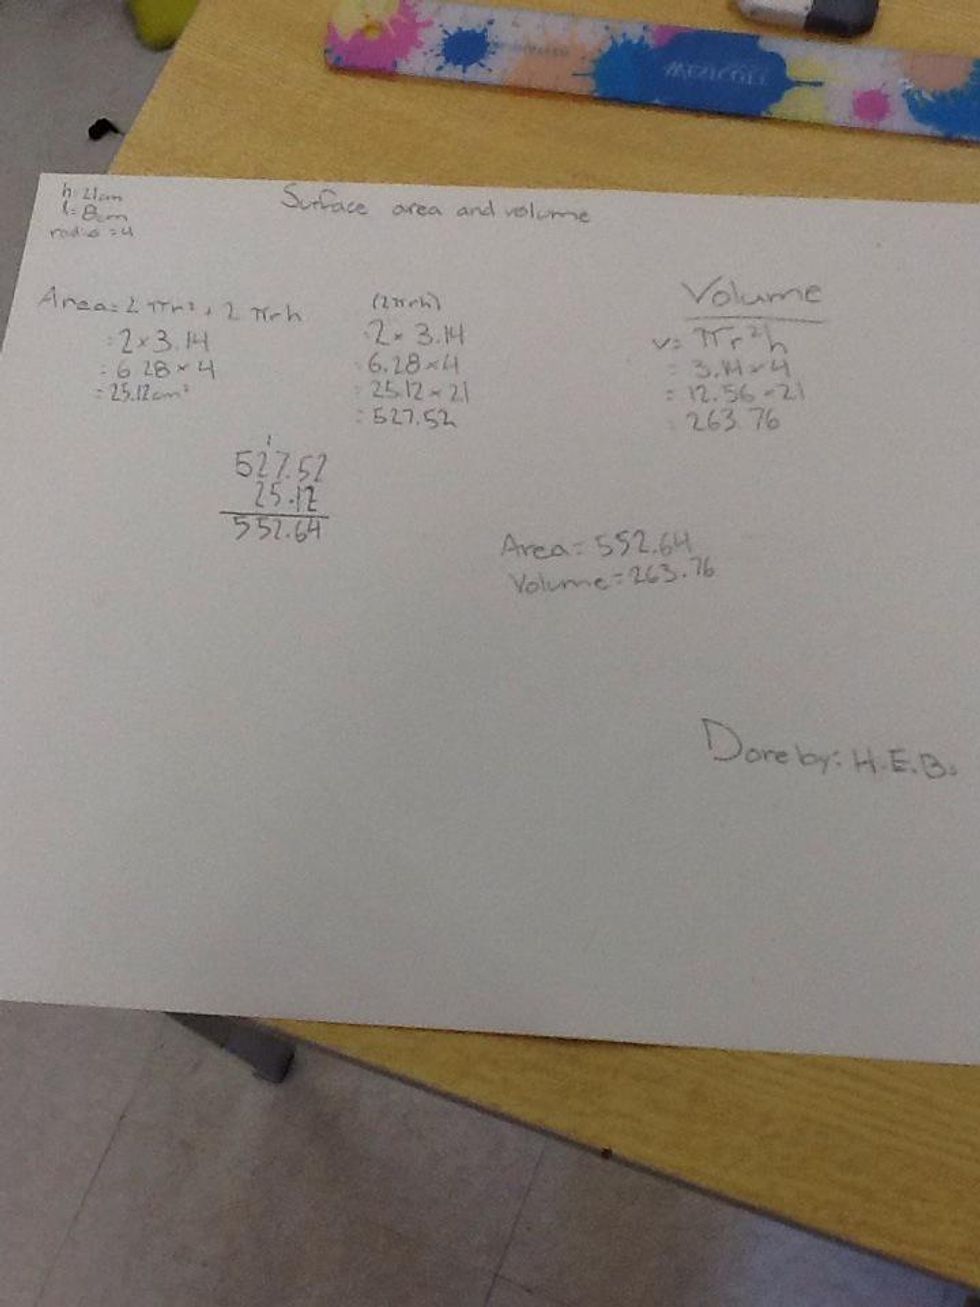 h: 21cm
l= 8cm
radius = 4
Surface area and volume
Area = 2 πr² + 2 πrh
= 2 × 3.14
= 6.28 × 4
= 25.12cm²
(2πrh)
= 2 × 3.14
= 6.28 × 4
= 25.12 × 21
= 527.52
Volume
v = πr²h
= 3.14 × 4
= 12.56 × 21
= 263.76
1
527.52
25.12
552.64
Area = 552.64
Volume = 263.76
Done by: H.E.B.